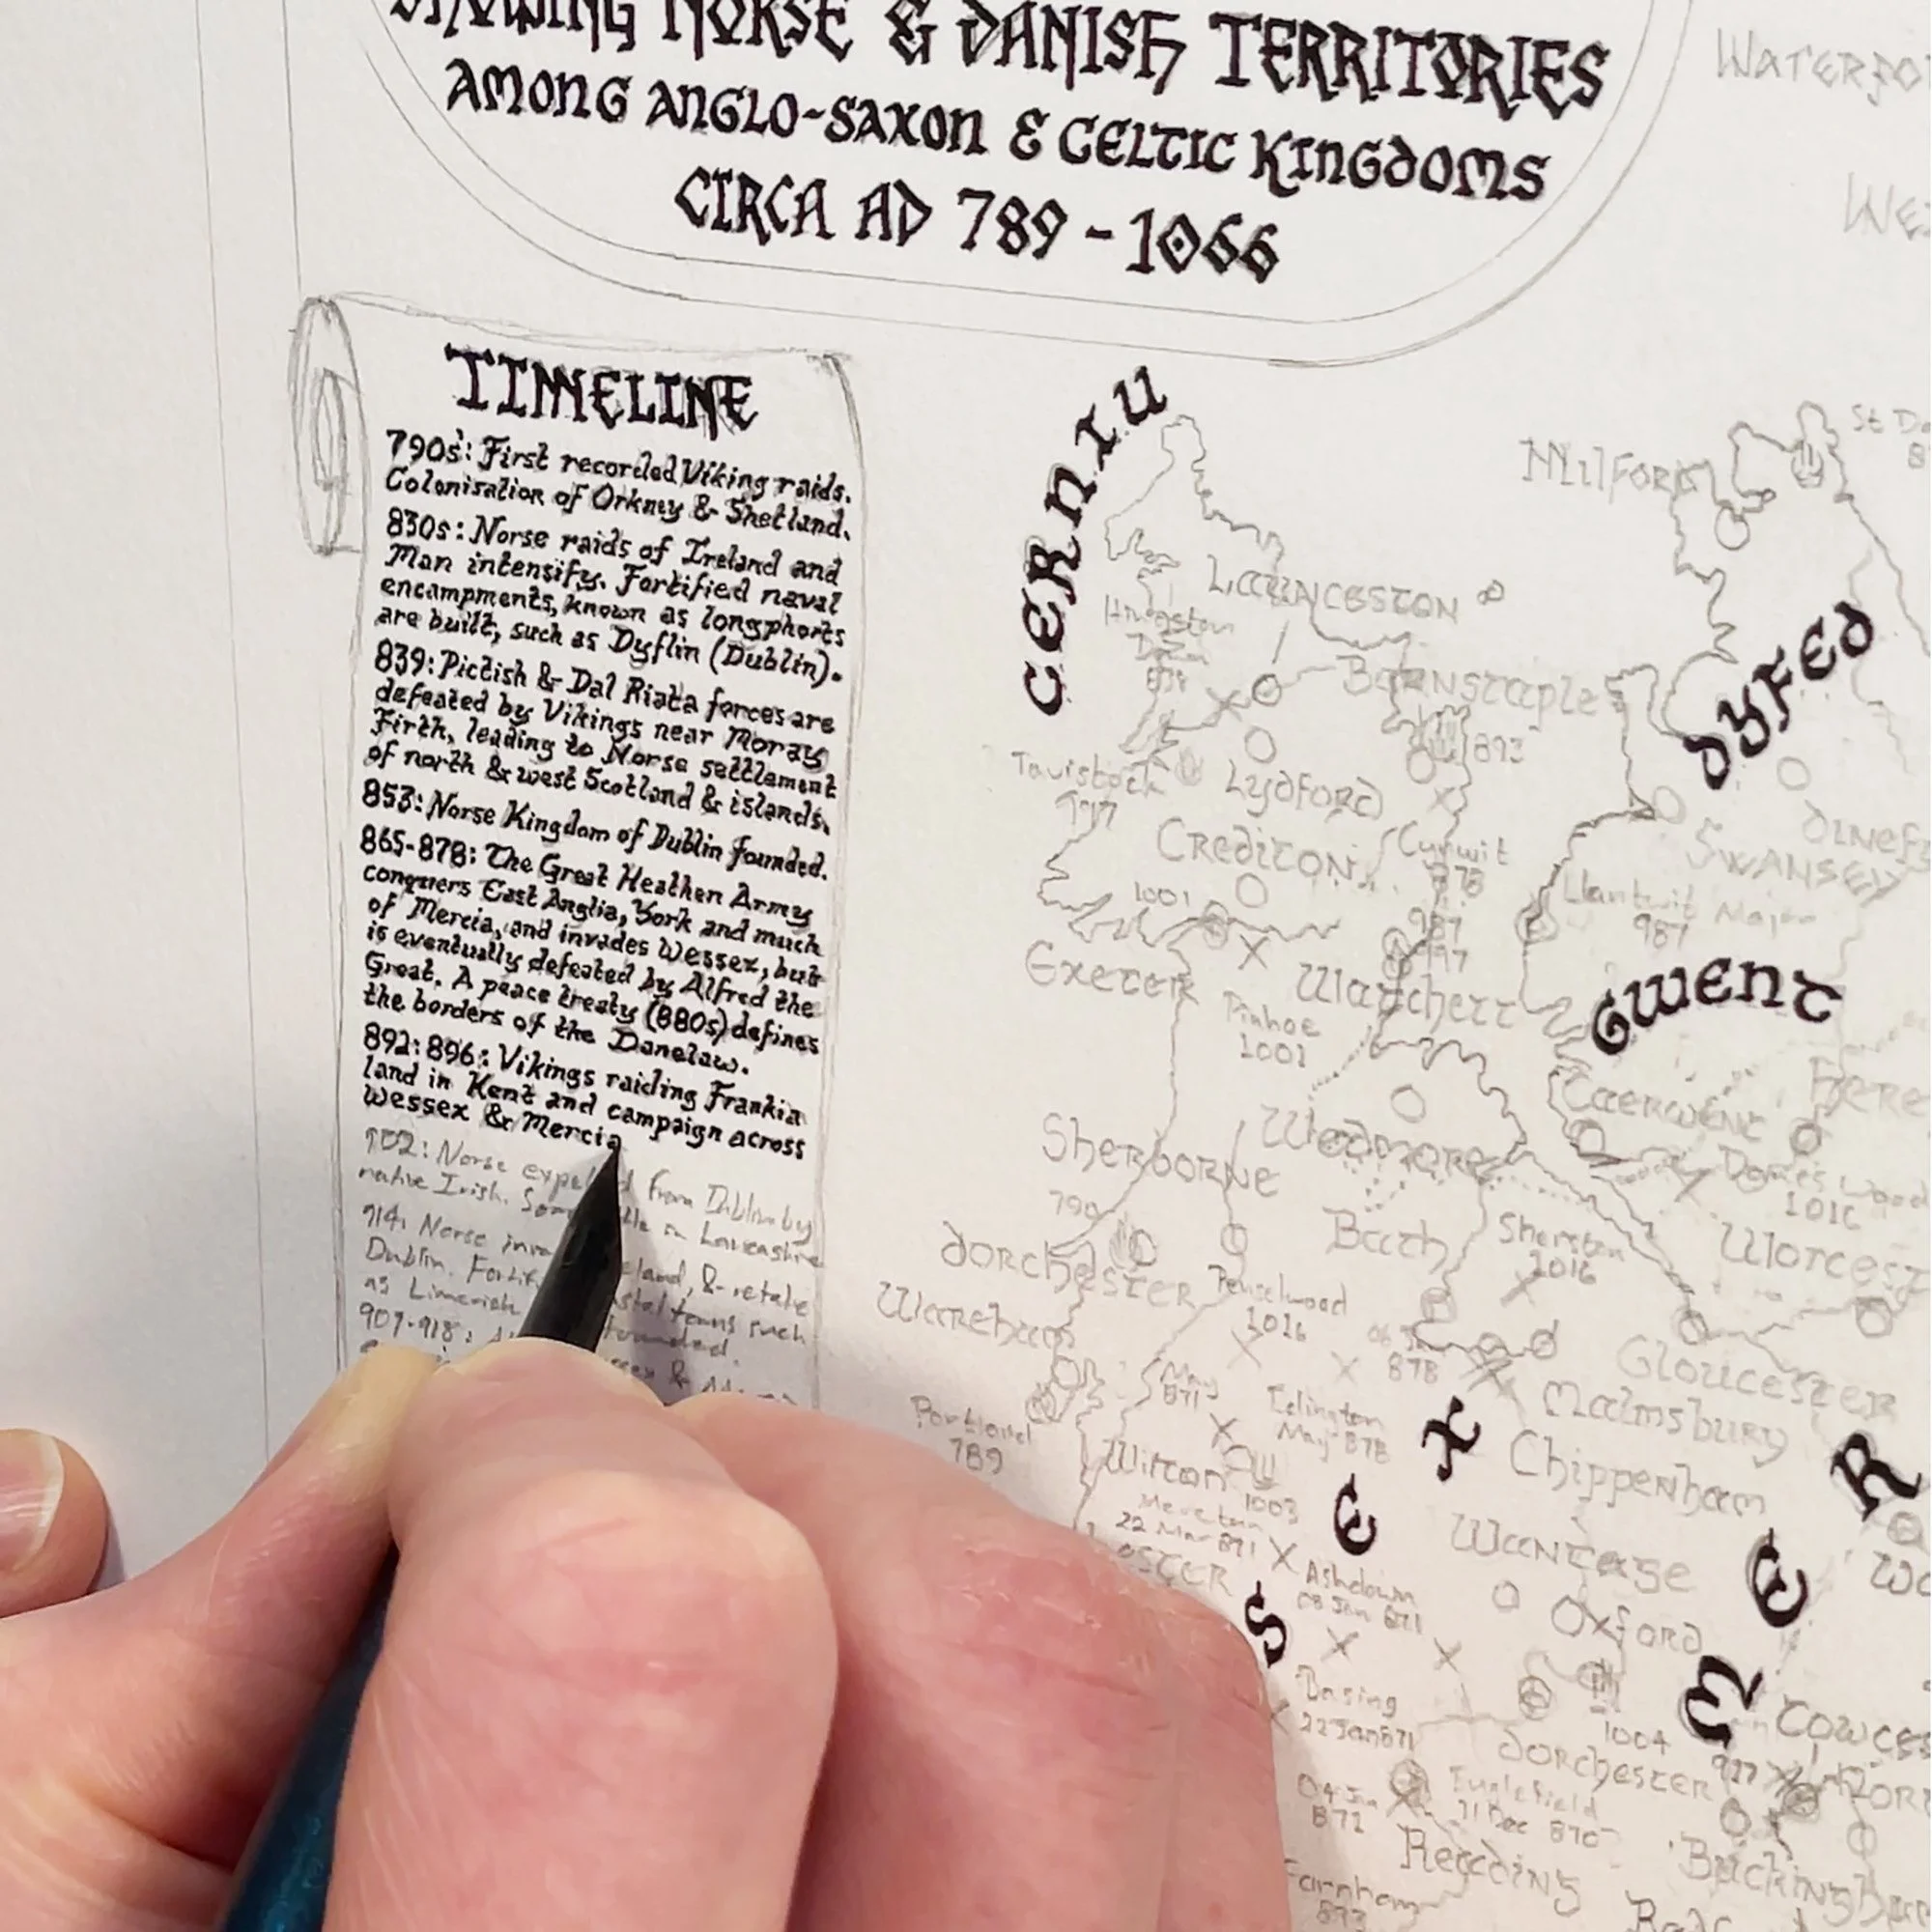 NORSE & DANISH TERRITORIES
AMONG ANGLO-SAXON & CELTIC KINGDOMS
CIRCA AD 789 - 1066
TIMELINE
790s: First recorded Viking raids.
Colonisation of Orkney & Shetland.
830s: Norse raids of Ireland and
Man intensify. Fortified naval
encampments, known as longphorts
are built, such as Dyflin (Dublin).
839: Pictish & Dal Riata forces are
defeated by Vikings near Moray
Firth, leading to Norse settlement
of north & west Scotland & islands.
853: Norse Kingdom of Dublin founded.
865-878: The Great Heathen Army
conquers East Anglia, York and much
of Mercia, and invades Wessex, but
is eventually defeated by Alfred the
Great. A peace treaty (880s) defines
the borders of the Danelaw.
892: 896: Vikings raiding Frankia
land in Kent and campaign across
Wessex & Mercia
902: Norse from Dublin by
native Irish. in Lancashire
914: Norse & retake
Dublin. such
as Limerick founded.
907-918:
CERNIU
Launceston
Hingston
Barnstaple
Milford
DYFED
Tavistock
997
Lydford
893
Crediton
Cynwit
878
Swansey
1001
Llantwit Major
987
987
997
Exeter
Watchett
GWENT
Pinhoe
1001
Caerwent
Sherborne
Wedmore
1016
789
Dorchester
Bath
Sherston
1016
Wareham
Penselwood
1016
878
Gloucester
Malmsbury
May
871
Edington
May 878
Portland
789
Wilton
1003
Chippenham
Meretun
22 Mar 871
Wantage
Ashdown
08 Jan 871
Oxford
S
E
X
M
E
R
Basing
22 Jan 871
1004
Dorchester
917
04 Jan
871
Englefield
31 Dec 870
Reading
Farnham
893